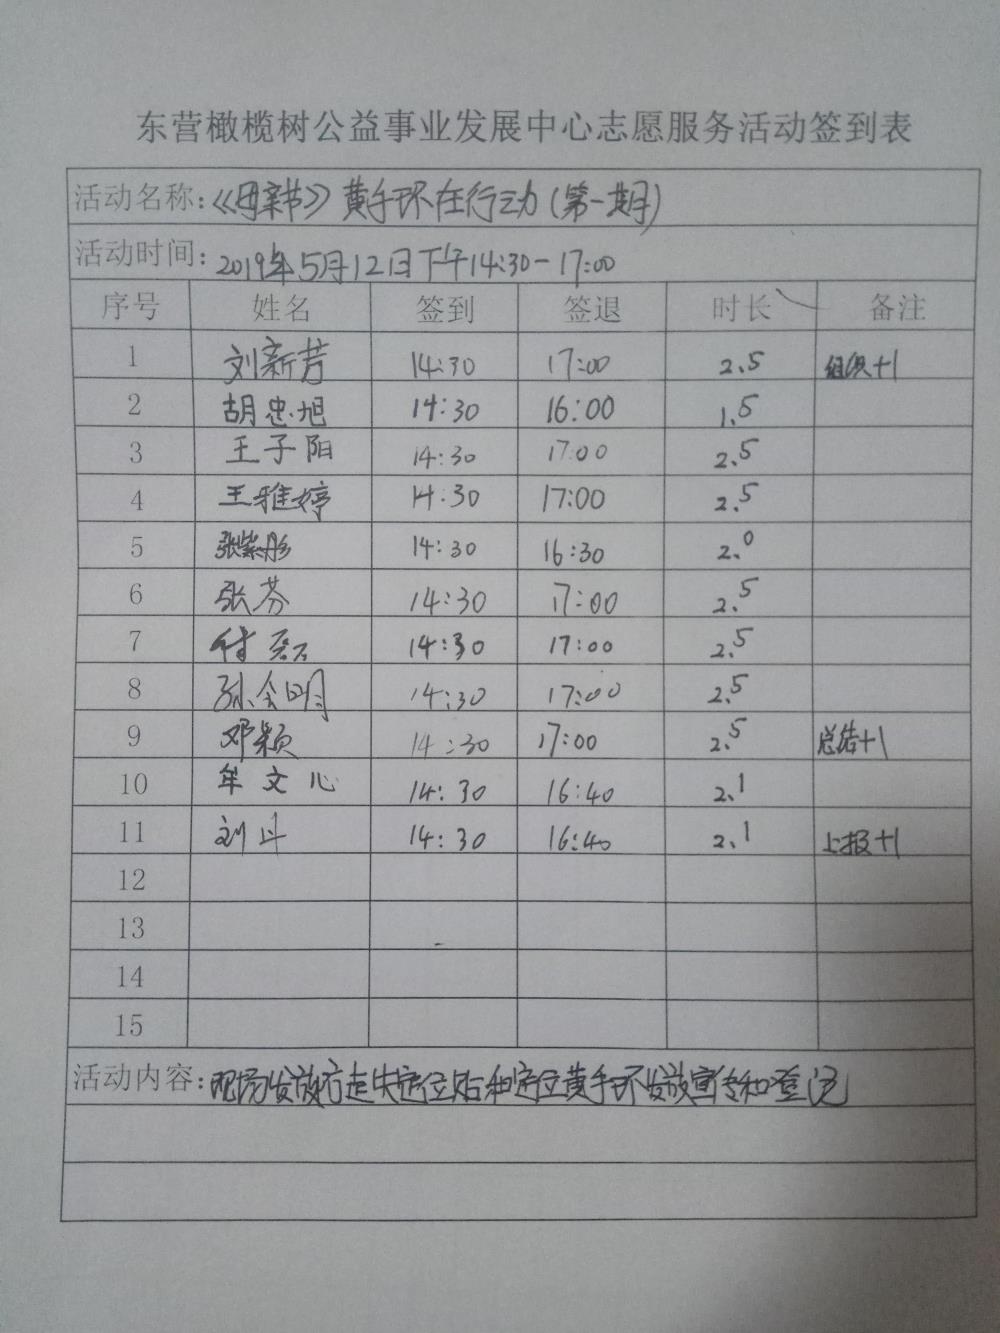 东营橄榄树公益事业发展中心志愿服务活动签到表
活动名称:《母亲节》黄手环在行动(第一期)
活动时间:2019年5月12日下午14:30-17:00
序号 姓名 签到 签退 时长 备注
1 刘新芳 14:30 17:00 2.5 组织+1
2 胡忠旭 14:30 16:00 1.5
3 王子阳 14:30 17:00 2.5
4 王雅婷 14:30 17:00 2.5
5 张紫彤 14:30 16:30 2.0
6 张芬 14:30 17:00 2.5
7 付 14:30 17:00 2.5
8 孙会明 14:30 17:00 2.5
9 邓颖 14:30 17:00 2.5 总结+1
10 牟文心 14:30 16:40 2.1
11 刘丹 14:30 16:40 2.1 上报+1
12
13
14
15
活动内容:现场发放防走失定位贴和定位黄手环发放宣传和登记